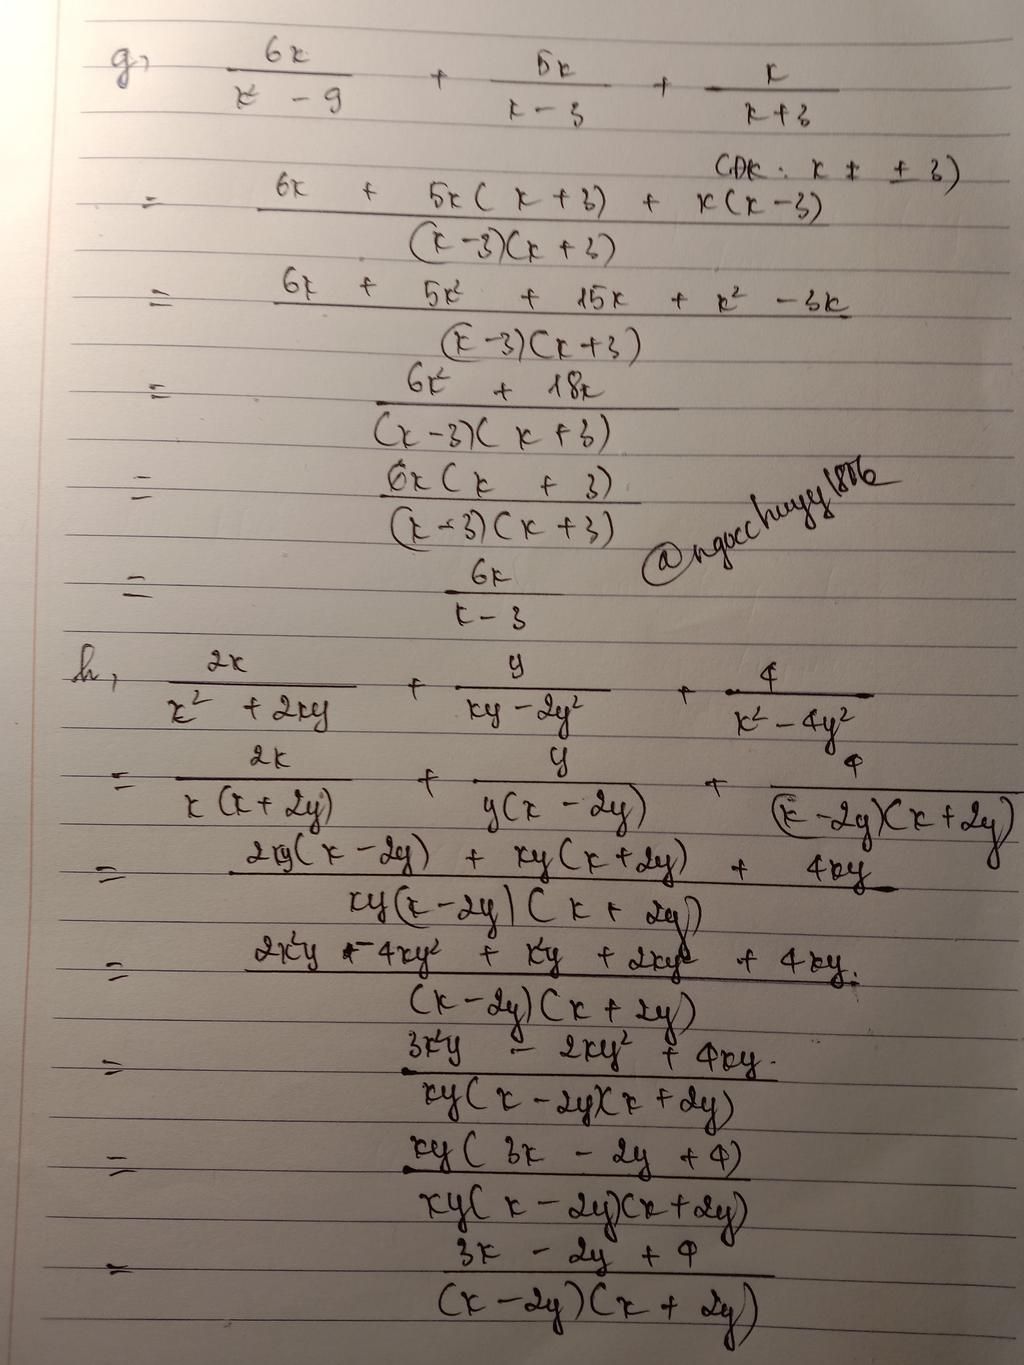 g, 6x/(x² - 9) + 5x/(x - 3) + x/(x + 3)
(ĐK: x ≠ ± 3)
= (6x + 5x(x + 3) + x(x - 3))/((x - 3)(x + 3))
= (6x + 5x² + 15x + x² - 3x)/((x - 3)(x + 3))
= (6x² + 18x)/((x - 3)(x + 3))
= (6x(x + 3))/((x - 3)(x + 3))
@ngocchuyy1806
= 6x/(x - 3)
h, 2x/(x² + 2xy) + y/(xy - 2y²) + 4/(x² - 4y²)
= 2x/(x(x + 2y)) + y/(y(x - 2y)) + 4/((x - 2y)(x + 2y))
= (2xy(x - 2y) + xy(x + 2y) + 4xy)/(xy(x - 2y)(x + 2y))
= (2x²y - 4xy² + x²y + 2xy² + 4xy)/((x - 2y)(x + 2y))
= (3x²y - 2xy² + 4xy)/(xy(x - 2y)(x + 2y))
= (xy(3x - 2y + 4))/(xy(x - 2y)(x + 2y))
= (3x - 2y + 4)/((x - 2y)(x + 2y))